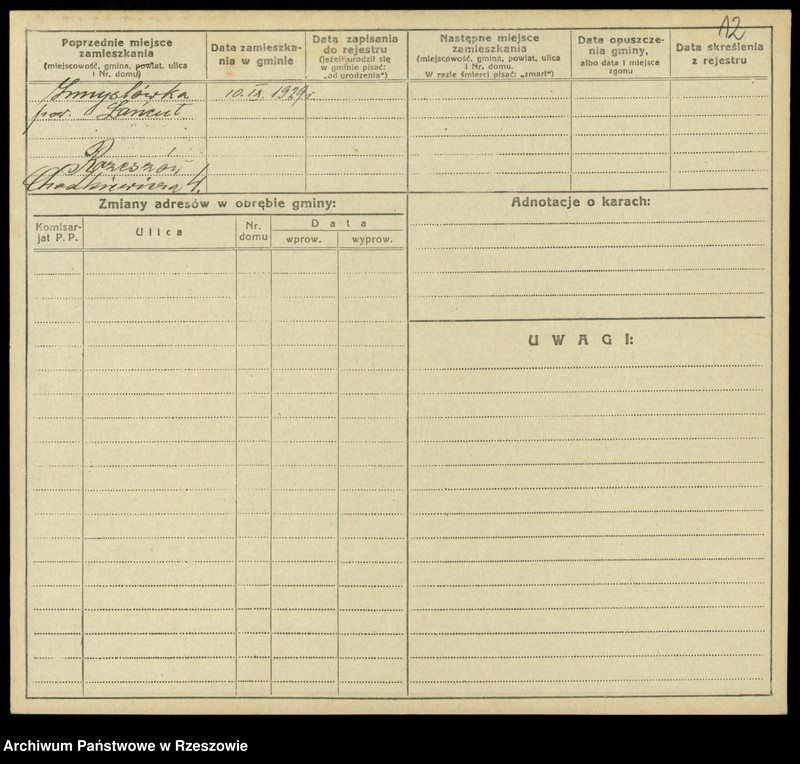 12
Poprzednie miejsce zamieszkania
(miejscowość, gmina, powiat, ulica i Nr. domu)
Data zamieszkania w gminie
Data zapisania do rejestru
(jeżeli urodził się w gminie pisać: „od urodzenia")
Następne miejsce zamieszkania
(miejscowość, gmina, powiat, ulica i Nr. domu.
W razie śmierci pisać: „zmarł")
Data opuszczenia gminy,
albo data i miejsce zgonu
Data skreślenia z rejestru
Zmysłówka
pow. Łańcut
10. IX. 1929 r
Rzeszów
Chodkiewicza 4.
Zmiany adresów w obrębie gminy:
Komisarjat P. P.
Ulica
Nr. domu
Data
wprow.
wyprow.
Adnotacje o karach:
UWAGI:
Archiwum Państwowe w Rzeszowie